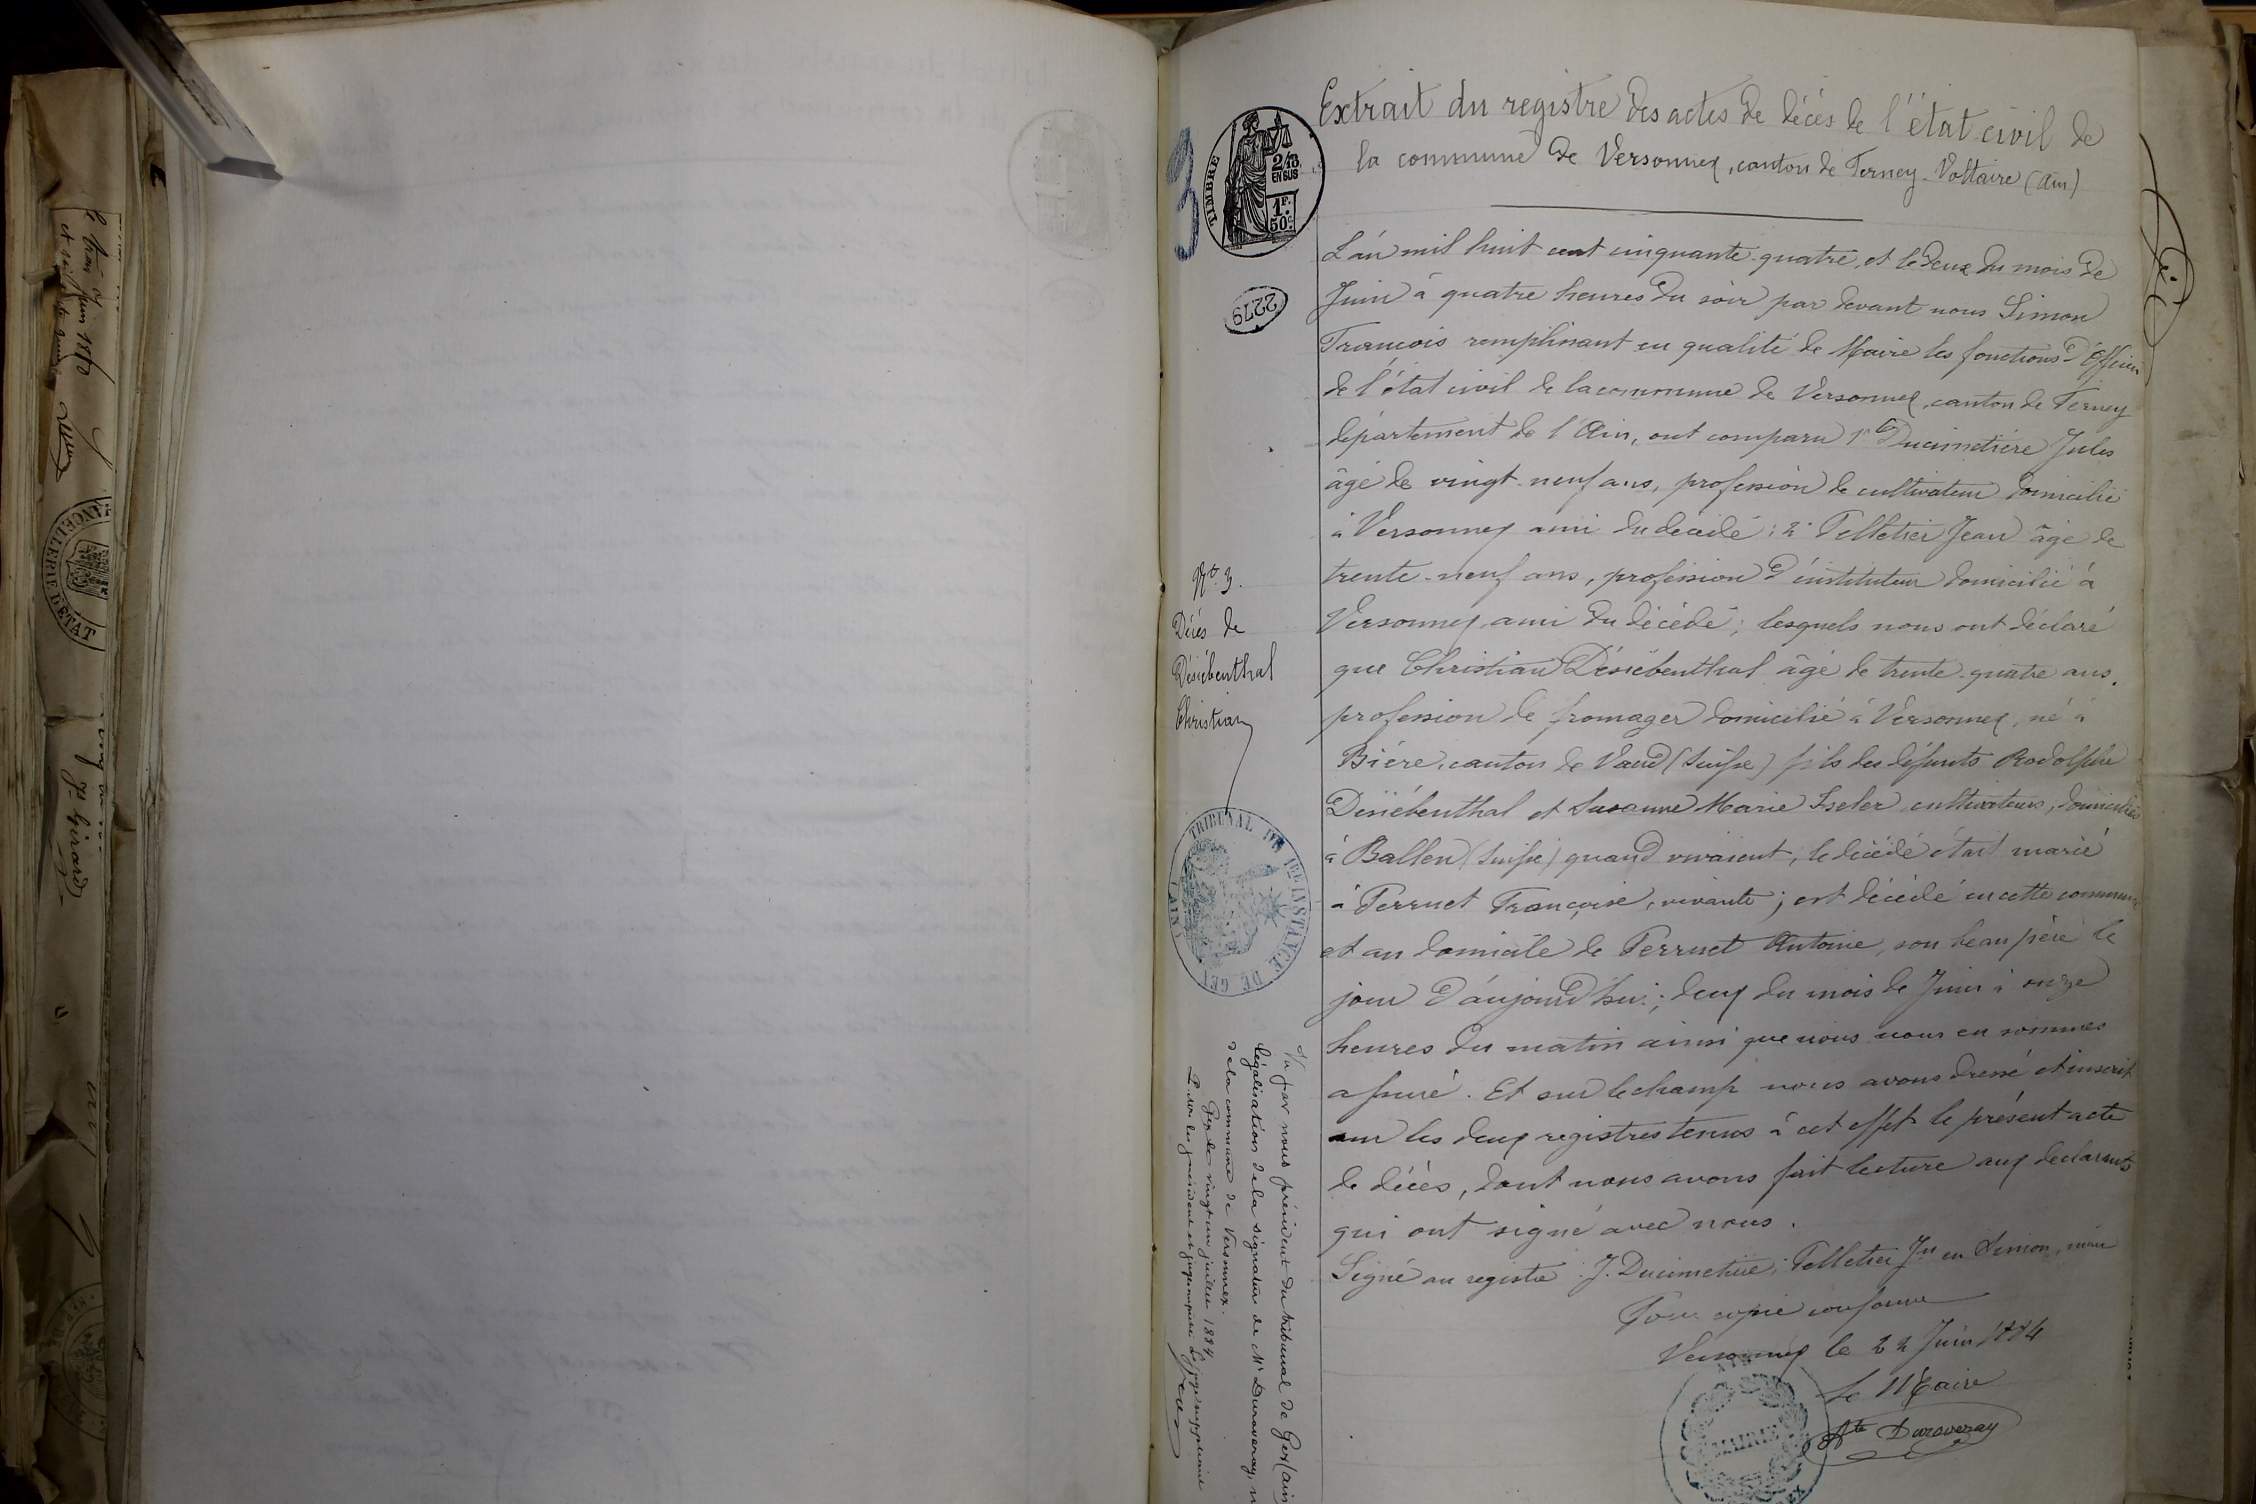 Extrait du registre des actes de décès de l'état civil de
la commune de Versonnex, canton de Ferney-Voltaire (Ain)
TIMBRE
2/10
EN SUS
1F.
50c.
3
2279
L'an mil huit cent cinquante-quatre, et le deux du mois de
Juin à quatre heures du soir par devant nous Simon
François remplissant en qualité de Maire les fonctions d'Officier
de l'état civil de la commune de Versonnex, canton de Ferney
département de l'Ain, ont comparu 1° Ducimetière Jules
âgé de vingt-neuf ans, profession de cultivateur domicilié
à Versonnex ami du décédé; 2° Pelletier Jean âgé de
trente-neuf ans, profession d'instituteur domicilié à
Versonnex ami du décédé; lesquels nous ont déclaré
que Christian Désiébenthal âgé de trente-quatre ans,
profession de fromager domicilié à Versonnex, né à
Bière, canton de Vaud (Suisse) fils des défunts Rodolphe
Désiébenthal et Susanne Marie Iseler cultivateurs, domiciliés
à Ballen (Suisse) quand vivaient, le décédé était marié
à Perruet Françoise, vivante; est décédé en cette commune
et au domicile de Perruet Antoine, son beau père le
jour d'aujourd'hui; deux du mois de Juin à onze
heures du matin ainsi que nous nous en sommes
assuré. Et sur le champ nous avons dressé et inscrit
sur les deux registres tenus à cet effet le présent acte
de décès, dont nous avons fait lecture aux déclarants
qui ont signé avec nous.
Signé au registre: J. Ducimetière; Pelletier Jn et Simon, maire
Pour copie conforme
Versonnex le 22 Juin 1884
Le Maire
Duraveray
MAIRIE
N° 3.
Décès de
Désiébenthal
Christian
TRIBUNAL DE 1re INSTANCE DE GEX
(AIN)
Vu par nous président du tribunal de Gex (Ain)
légalisation de la signature de Mr Duraveray,
de la commune de Versonnex.
Gex le vingt un juillet 1884
P. Mr le président et juge empêchés Le juge suppléant
CHANCELLERIE D'ETAT
Jn Girard